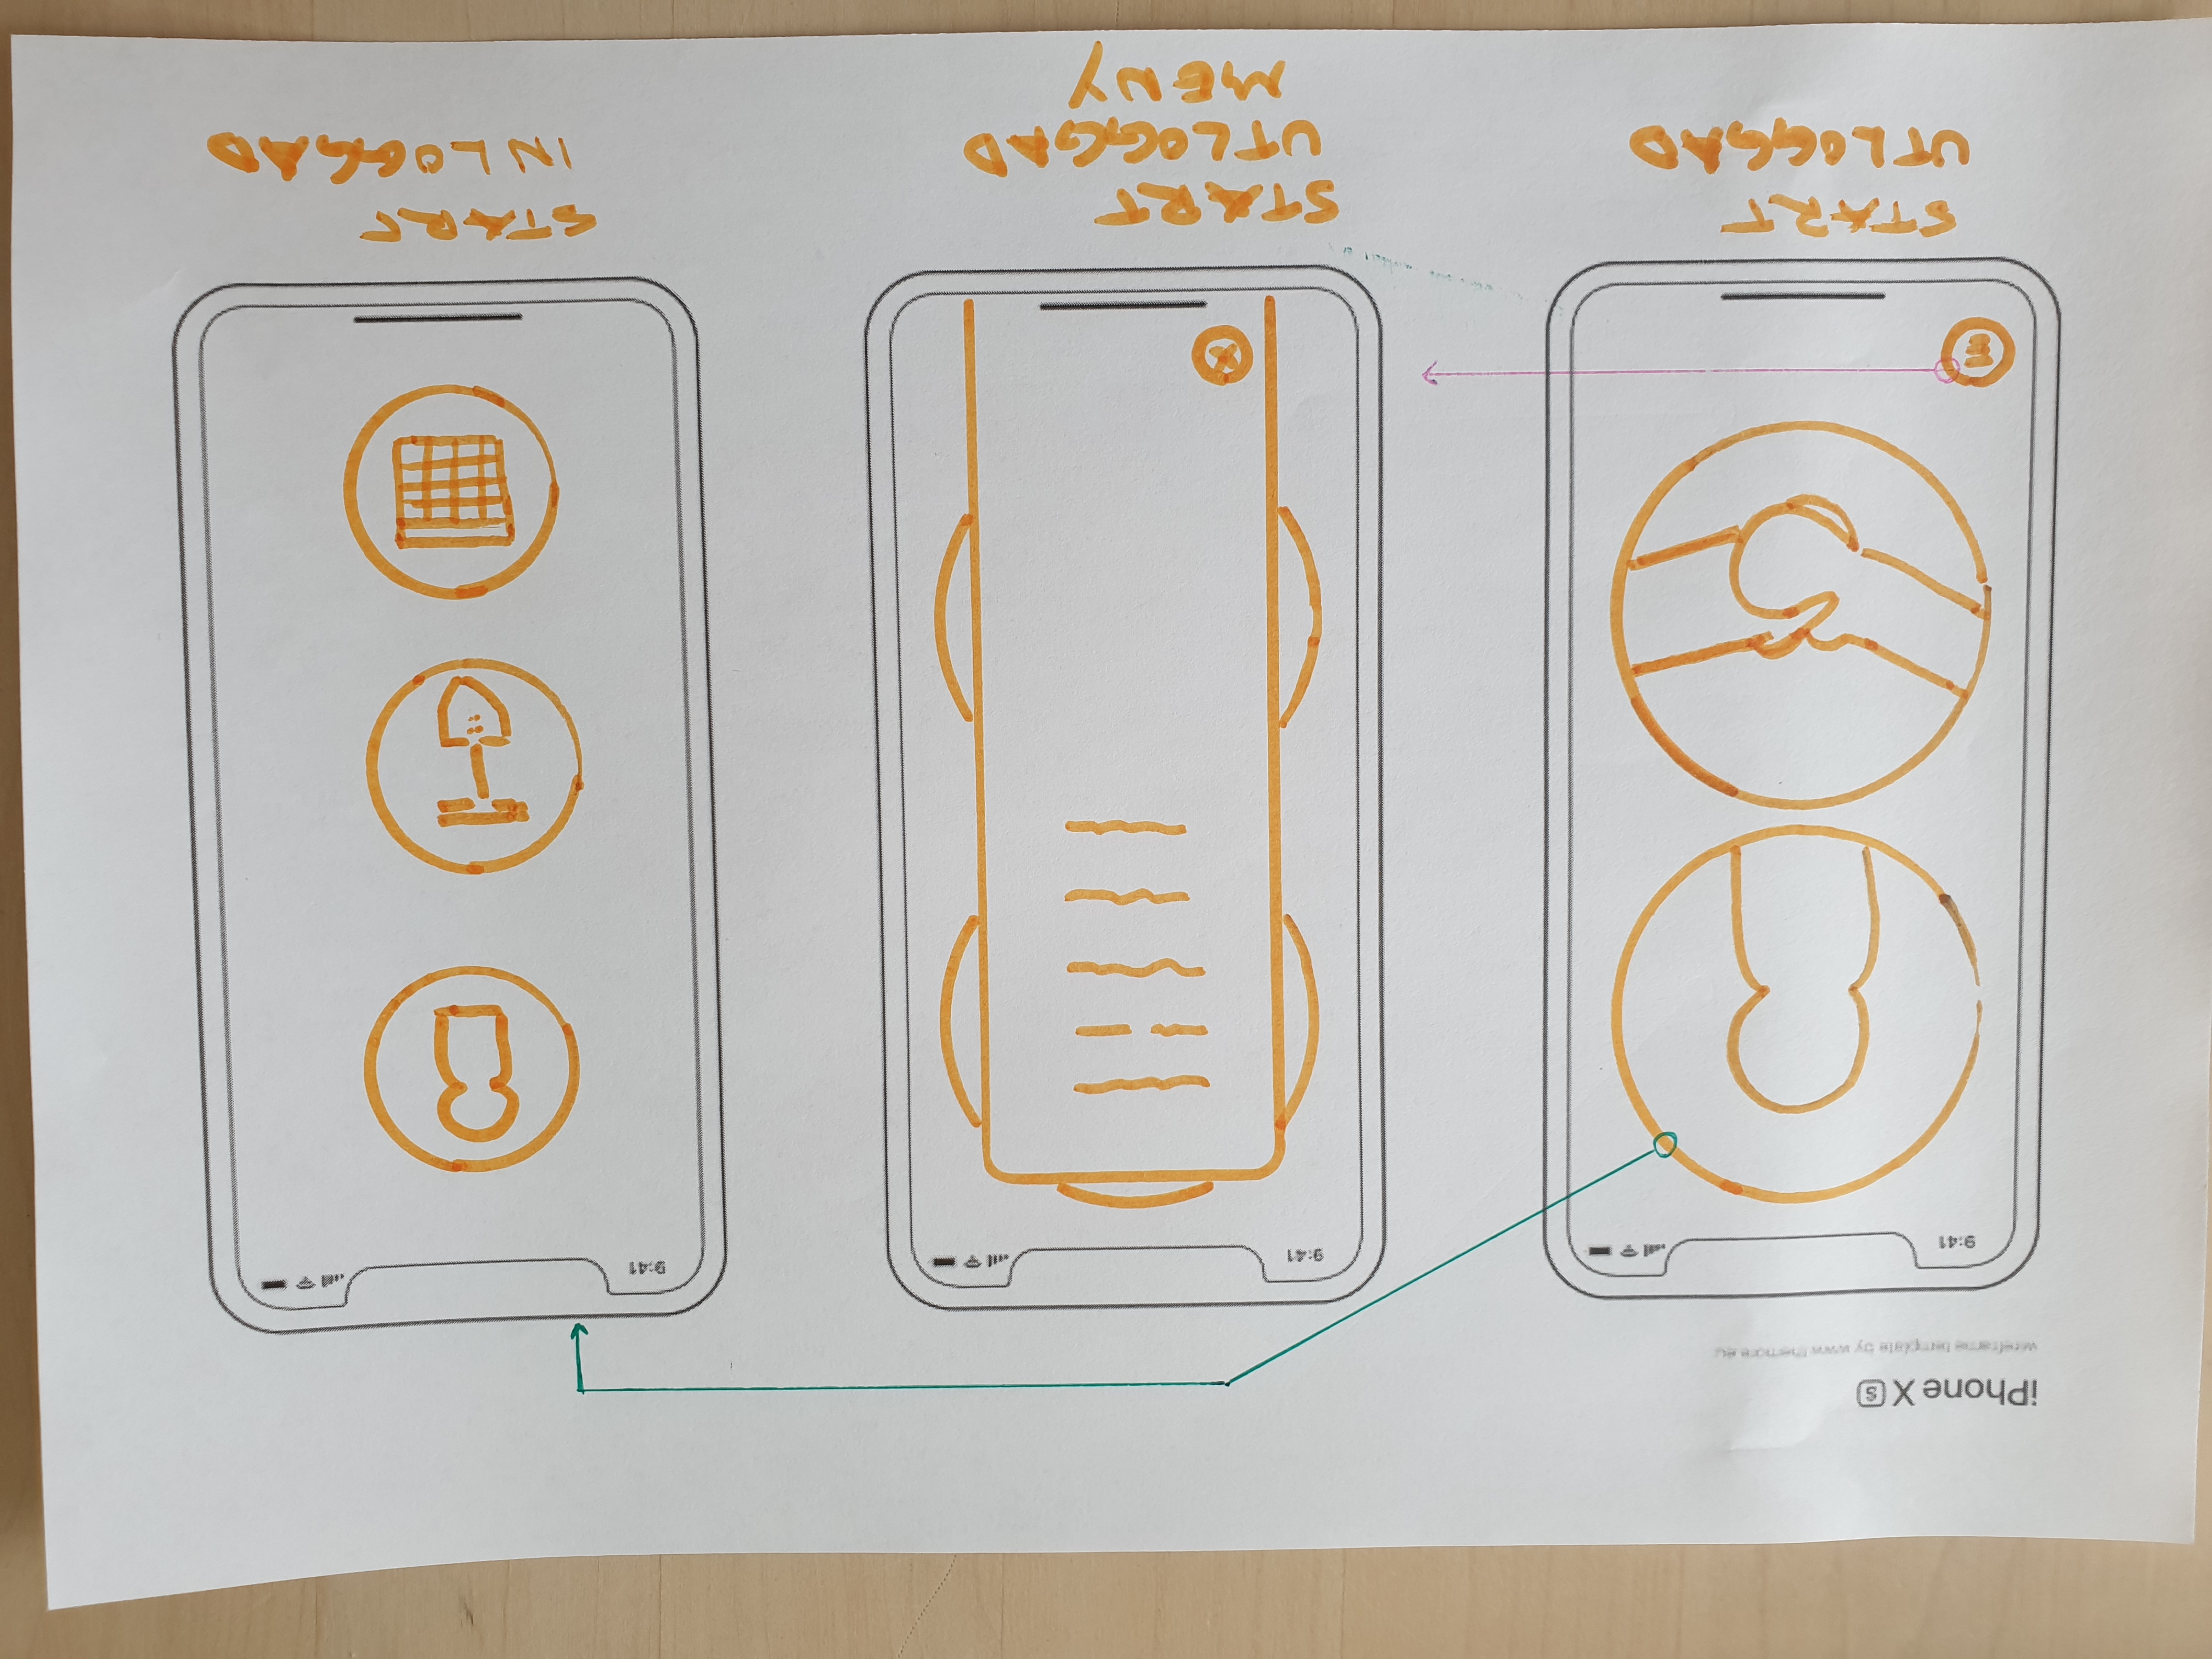 iPhone XS
wireframe template by www.themore.eu
9:41
9:41
9:41
START
UTLOGGAD
START
UTLOGGAD
MENY
START
INLOGGAD